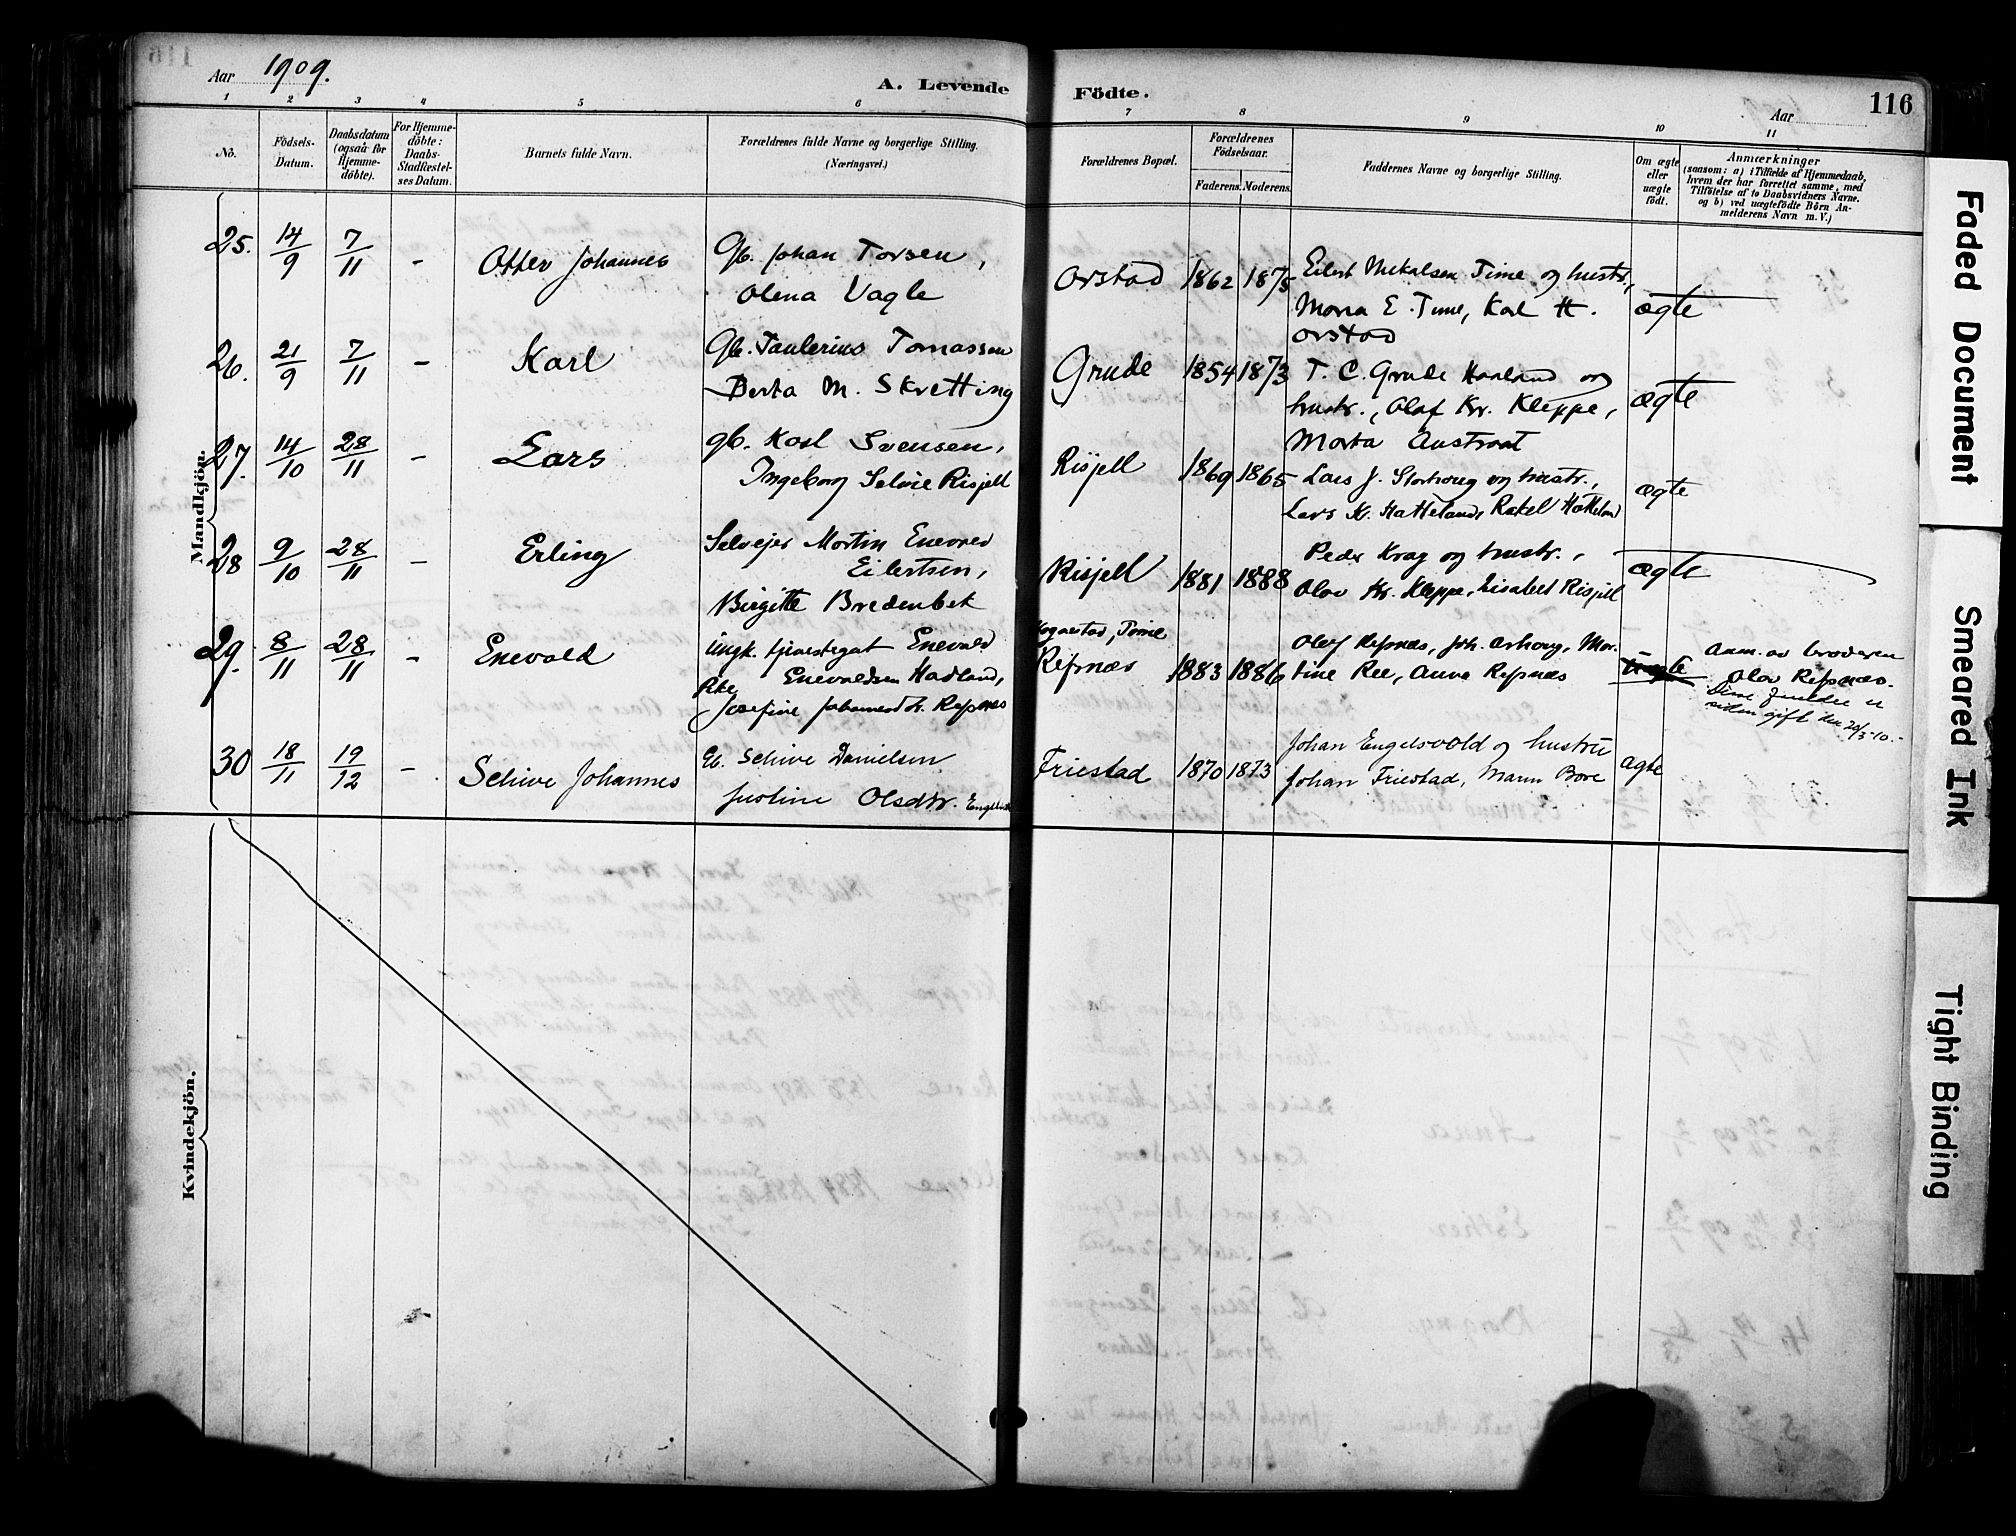 Aar 1909.
A. Levende Födte.
Aar
116
1 2 3 4 5 6 7 8 9 10 11
No.
Födsels-Datum.
Daabsdatum (ogsaa for Hjemme-döbte).
For Hjemme-döbte: Daabs-Stadfæstel-ses Datum.
Barnets fulde Navn.
Forældrenes fulde Navne og borgerlige Stilling. (Næringsvei.)
Forældrenes Bopæl.
Forældrenes Födselsaar.
Faderens. Moderens.
Faddernes Navne og borgerlige Stilling.
Om ægte eller uægte födt.
Anmærkninger
(saasom: a) i Tilfælde af Hjemmedaab,
hvem der har forrettet samme, med
Tilföielse af to Daabsvidners Navne.
og b) ved uægtefödte Börn An-
melderens Navn m. V.)
Mandkjön.
25. 14/9 7/11 - Otter Johannes
Gb. Johan Torsen,
Olena Vagle
Orstad 1862 1875
Eilert Mikalsen Time og hustr.,
Marta E. Time, Karl H.
Orstad
ægte
26. 21/9 7/11 - Karl
Gb. Taulerius Tomassen
Berta M. Skretting
Grude 1854 1873
T. C. Grude Haaland og
hustr., Olaf Kr. Kleppe,
Marta Austraat
ægte
27. 14/10 28/11 - Lars
gb. Karl Svensen,
Ingeborg Selvie Risjell
Risjell 1869 1865
Lars J. Storhoug og hustr.,
Lars K. Hatteland, Rakel Hatteland
ægte
28 9/10 28/11 - Erling
Selvejer Martin Enevald
Eilertsen,
Birgitte Bredenbek
Risjell 1881 1888
Peder Krag og hustr.,
Olav Kr. Kleppe, Lisabet Risjell
ægte
29. 8/11 28/11 - Enevald
ungk. tjenestegut Enevald
Enevaldsen Hadland,
Pike Josefine Johannesdtr. Refsnæs
Hognestad, Time
Refsnæs 1883 1886
Olaf Refsnæs, Joh. Arhoug, Mar-
tine Ree, Anna Refsnæs
uægte
Anm. av broderen
Olav Refsnæs.
Disse forældre er
siden gift den 20/3-10.
30 18/11 19/12 - Schive Johannes
Gb. Schive Danielsen
Justine Olsdtr.
Friestad 1870 1873
Johan Engelsvold og hustru
Johan Friestad, Mann Bore
ægte
Kvindekjön.
Faded Document
Smeared Ink
Tight Binding